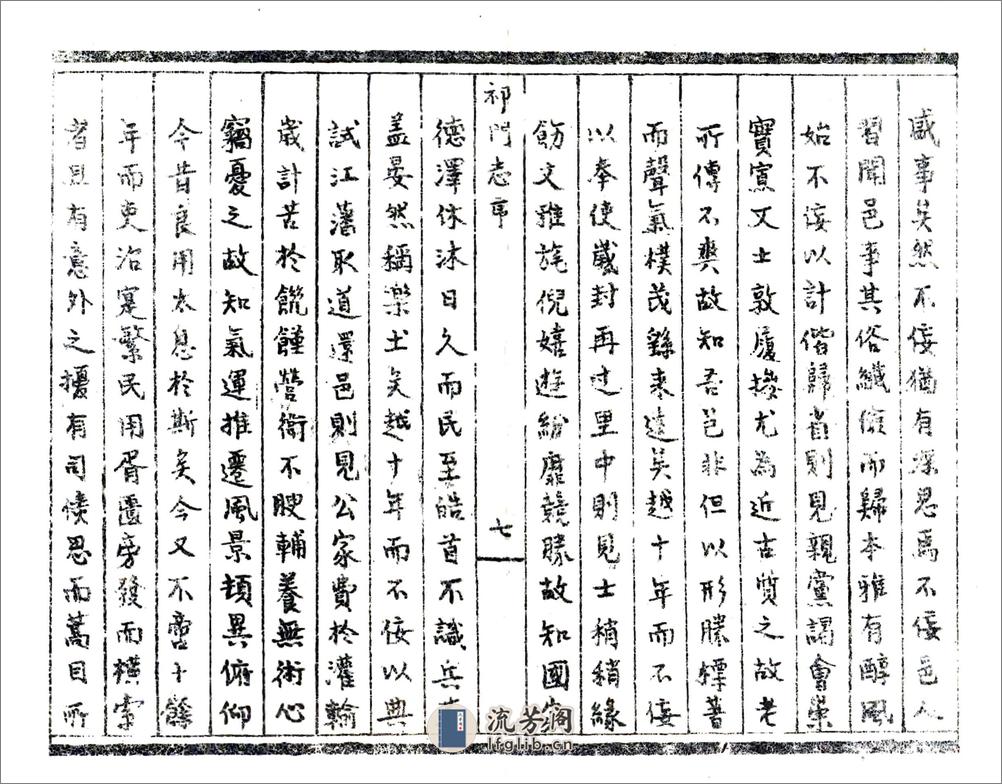 盛事矣然不佞猶有深思焉不佞邑人
習聞邑事其俗纖儉而歸本雅有醇風
始不佞以計偕歸省則見親黨謁會葉
實賓文士敦履操尤為近古質之故老
所傳不爽故知吾邑非但以形勝標著
而聲氣樸茂繇來遠矣越十年而不佞
以奉使藏封再過里中則見士稍稍緣
飭文雅旄倪嬉遊紛靡競勝故知國家
祁門志序
七
德澤休沐日久而民至皓首不識兵
蓋晏然稱樂土矣越十年而不佞以典
試江藩取道還邑則見公家費於灌輸
歲計苦於饑饉營衛不腴輔養無術心
竊憂之故知氣運推遷風景頓異俯仰
今昔良用太息於斯矣今又不啻十餘
年而吏治寔繁民用胥匱旁發而橫索
者且有意外之擾有司僕思而蒿目所
流芳阁
lfglib.cn